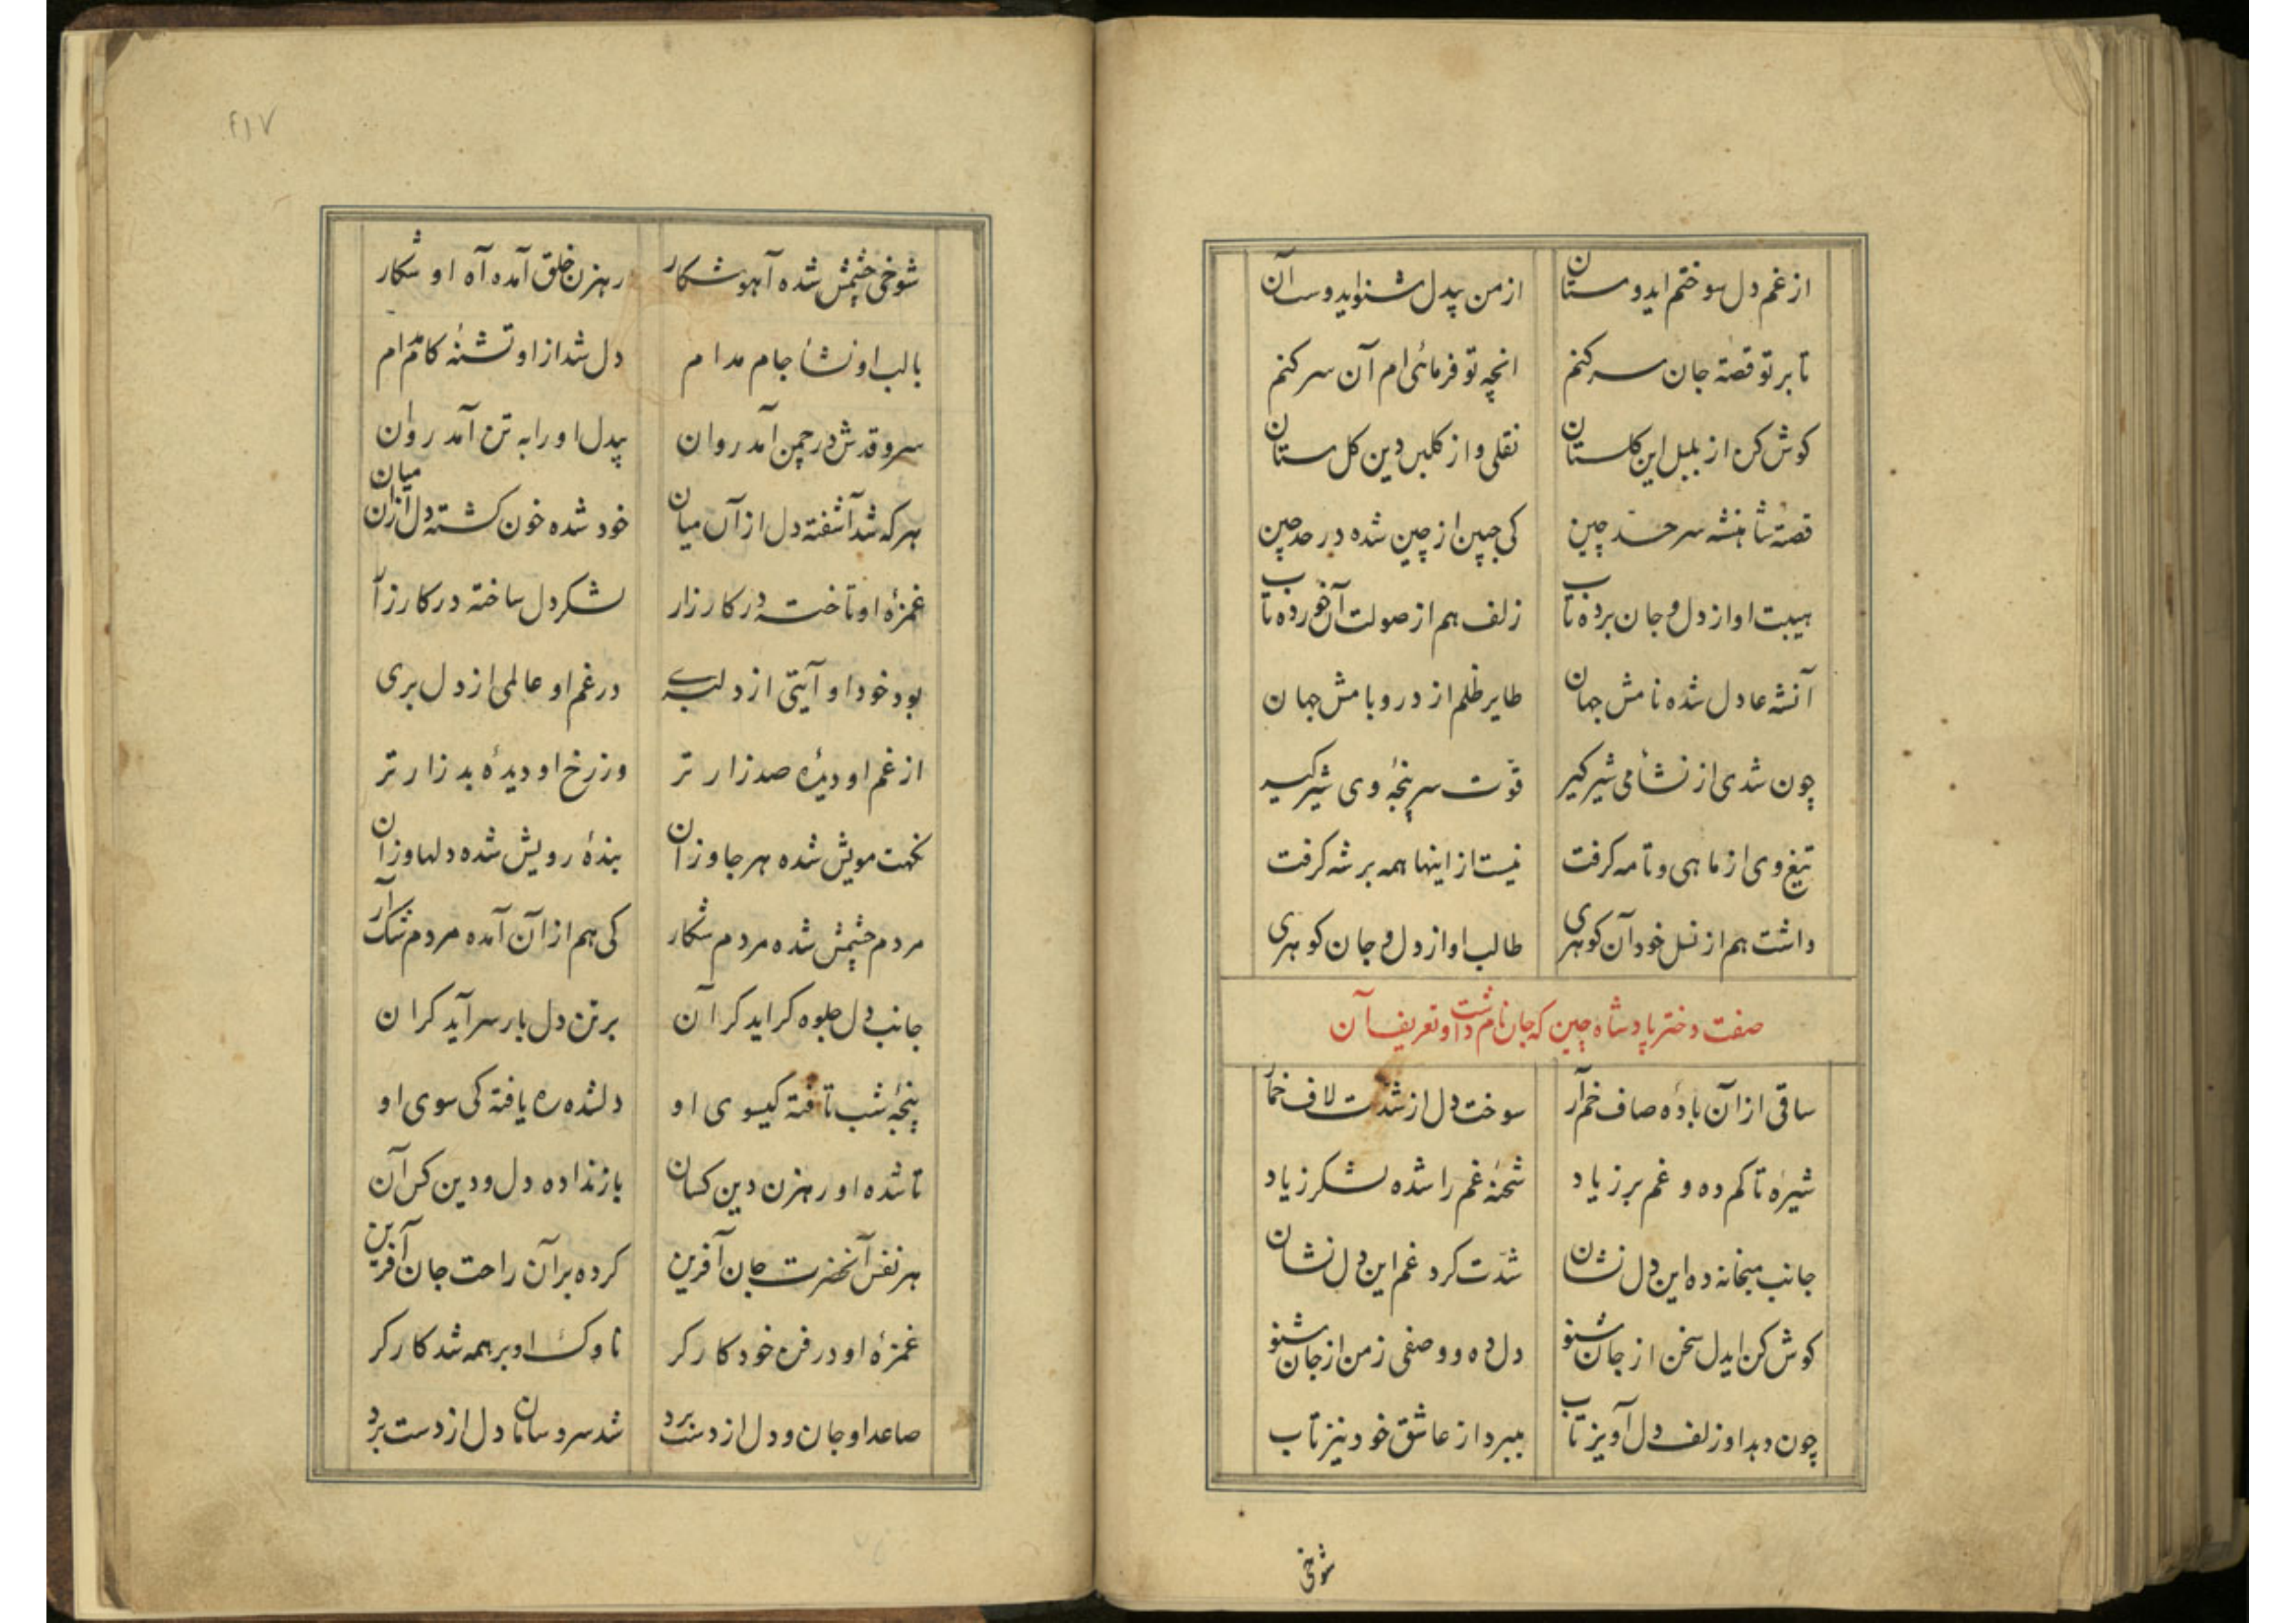 از غم دل سوختم ایدوستان از من بیدل شنواید وستان
تا بر تو قصهٔ جان سر کنم انچه تو فرمائی ام آن سر کنم
کوش کن از بلبل این کلستان نقلی و از کلبن دین کل ستان
قصهٔ شاهنشه سر حد چین کی جبین از چین شده در حد چین
هیبت او از دل و جان برده تاب زلف هم از صولت آن خورده تاب
آنشه عادل شده نامش جهان طایر ظلم از در و بامش جهان
چون شدی از نشأ می شیر کیر قوّت سر پنجهٔ وی شیر کیر
تیغ وی از ماهی و تا مه کرفت نیست از اینها همه بر شه کرفت
داشت هم از نسل خود آن کوهری طالب او از دل و جان کوهری
صفت دختر پادشاه چین که جان نام داشت و تعریف آن
ساقی از آن بادهٔ صاف خم آر سوخت دل از شدّت لاف خمار
شیرهٔ تا کم ده و غم بر زیاد شحنهٔ غم را شده لشکر زیاد
جانب میخانه ده این دل نشان شدّت کرد غم این دل نشان
کوش کن ایدل سخن از جان شنو دل ده و وصفی ز من از جان شنو
چون دهد او زلف دل آویز تاب میبرد از عاشق خود نیز تاب
شوخی
۴۱۷
شوخی چشمش شده آهو شکار رهزن خلق آمده آه او شکار
با لب او نشأ جام مدام دل شد از او تشنهٔ کام مدام
سرو قدش در چمن آمد روان بیدل او را به تن آمد روان
هر که شد آشفته دل از آن میان خود شده خون کشته دل از آن میان
غمزهٔ او تاخته در کارزار لشکر دل ساخته در کار زآر
بود خود او آیتی از دلبری در غم او عالمی از دل بری
از غم او دیدهٔ صد زار تر وز رخ او دیدهٔ بد زار تر
نکهت مویش شده هر جا وزان بندهٔ رویش شده دلها وزان
مردم چشمش شده مردم شکار کی هم از آن آمده مردم شک آر
جانب دل جلوه کر اید کر آن بر تن دل بار سر آید کران
پنجهٔ شب تافته کیسوی او دلشده ره یافته کی سوی او
تا شده او رهزن دین کسان باز نداده دل و دین کس آن
هر نفس آنحضرت جان آفرین کرده بر آن راحت جان آفرین
غمزهٔ او در فن خود کار کر ناوک او بر همه شد کار کر
صاعد او جان و دل از دست برد شد سر و سامان دل از دست برد